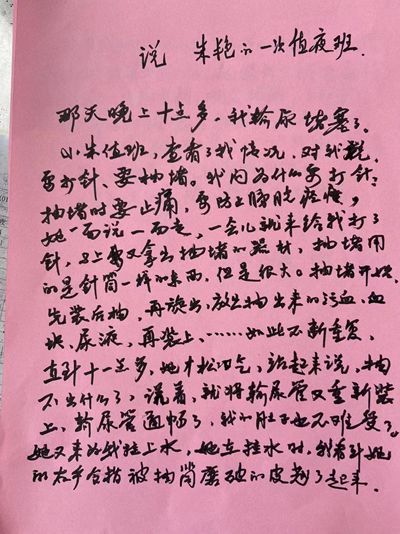 说 朱艳的一次值夜班.
那天晚上十点多，我输尿堵塞了。
小朱值班，查看了我情况，对我说，
要打针、要抽堵。我问为什么要打针？
抽堵时要止痛，要防止膀胱痉挛，
她一面说一面走，一会儿就来给我打了
针，马上要又拿出抽堵的器材，抽堵用
的是针筒一样的东西，但是很大。抽堵开始，
先装后抽，再放出，放出抽出来的污血、血
块、尿液，再装上、……如此不断重复，
直到十一点多，她才松口气，站起来说，抽
不出什么了，说着，就将输尿管又重新装
上，输尿管通畅了，我的肚子也不难受了。
她又来为我挂上水，她在挂水时，我看到她
的右手合指被抽筒磨破的皮翘了起来.